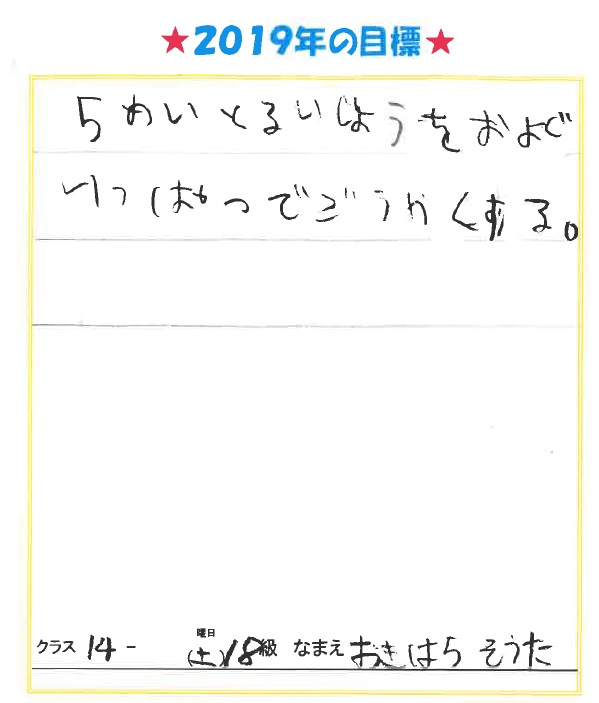 ★2019年の目標★
5めいとるいじょうをおよぐ
いっぱつでごうかくする。
クラス 14- 曜日 (土) 18級 なまえ おきはら そうた